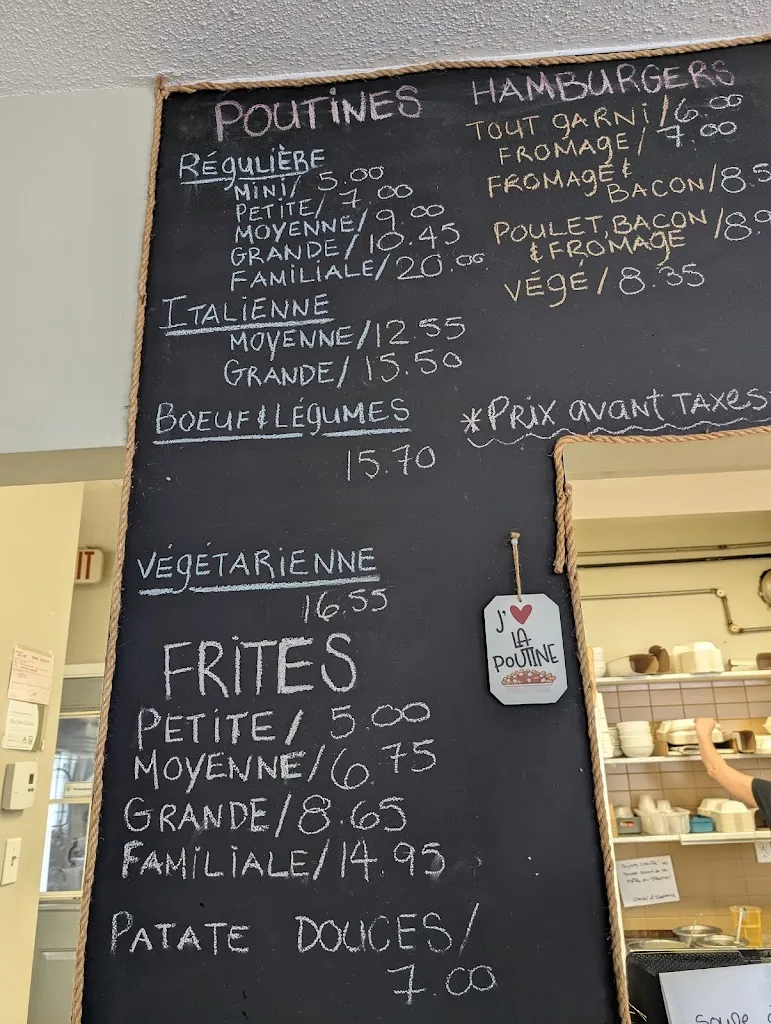 POUTINES
RÉGULIÈRE
MINI/ 5.00
PETITE/ 7.00
MOYENNE/9.00
GRANDE/10.45
FAMILIALE/20.00
ITALIENNE
MOYENNE/12.55
GRANDE/15.50
BOEUF & LÉGUMES
15.70
VÉGÉTARIENNE
16.55
FRITES
PETITE/ 5.00
MOYENNE/6.75
GRANDE/8.65
FAMILIALE/14.95
PATATE DOUCES/
7.00
HAMBURGERS
TOUT GARNI/6.00
FROMAGE/ 7.00
FROMAGE &
BACON/8.5
POULET, BACON
& FROMAGE /8.
VÉGÉ/8.35
*PRIX avant TAXES
J'❤
LA
POUTINE
IT
SOUPE